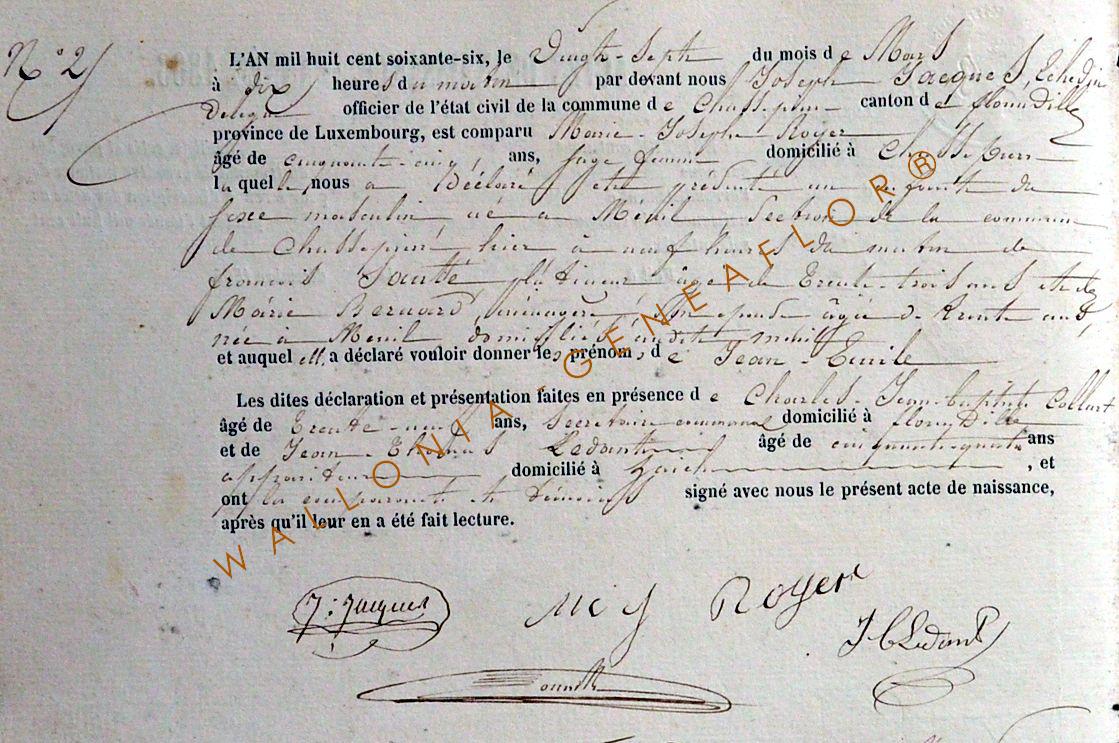 N° 2
L'AN mil huit cent soixante-six, le Vingt-Sept du mois de Mars
à dix heures du matin par devant nous Joseph Jacques, Echevin
Délégué officier de l'état civil de la commune de Chassepierre canton de florenville
province de Luxembourg, est comparu Marie-Joseph Royer
âgé de cinquante-cinq, ans, sage femme domicilié à Chassepierre
la quelle nous a Déclaré et présenté un enfant du
sexe masculin né à Ménil, Section de la commune
de Chassepierre hier à neuf heures du matin de
francois Jauté âgé de Trente-trois ans et de
Marie Bernard, ménagère, son épouse âgée de trente ans
née à Menil, domiciliés audit menil
et auquel elle a déclaré vouloir donner les prénoms de Jean-Emile
Les dites déclaration et présentation faites en présence de Charles-Jean-baptiste Collart
âgé de Trente-neuf ans, Secrétaire communal domicilié à florenville
et de Jean-Thomas Ledant âgé de cinquante-quatre ans
appariteur domicilié à Laiche, et
ont la comparante et témoins signé avec nous le présent acte de naissance,
après qu'il leur en a été fait lecture.
J: Jacques
M J Royer
J T Ledant
WALLONIA-GENEAFLOR®